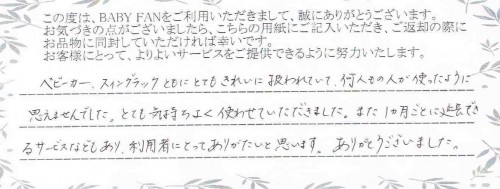 この度は、BABY FANをご利用いただきまして、誠にありがとうございます。
お気づきの点がございましたら、こちらの用紙にご記入いただき、ご返却の際に
お品物に同封していただければ幸いです。
お客様にとって、よりよいサービスをご提供できるように努力いたします。
ベビーカー、スィングラックともにとてもきれいに扱われていて、何人もの人が使ったように
思えませんでした。とても気持ちよく使わせていただきました。また1カ月ごとに延長でき
るサービスなどもあり、利用者にとってありがたいと思います。ありがとうございました。